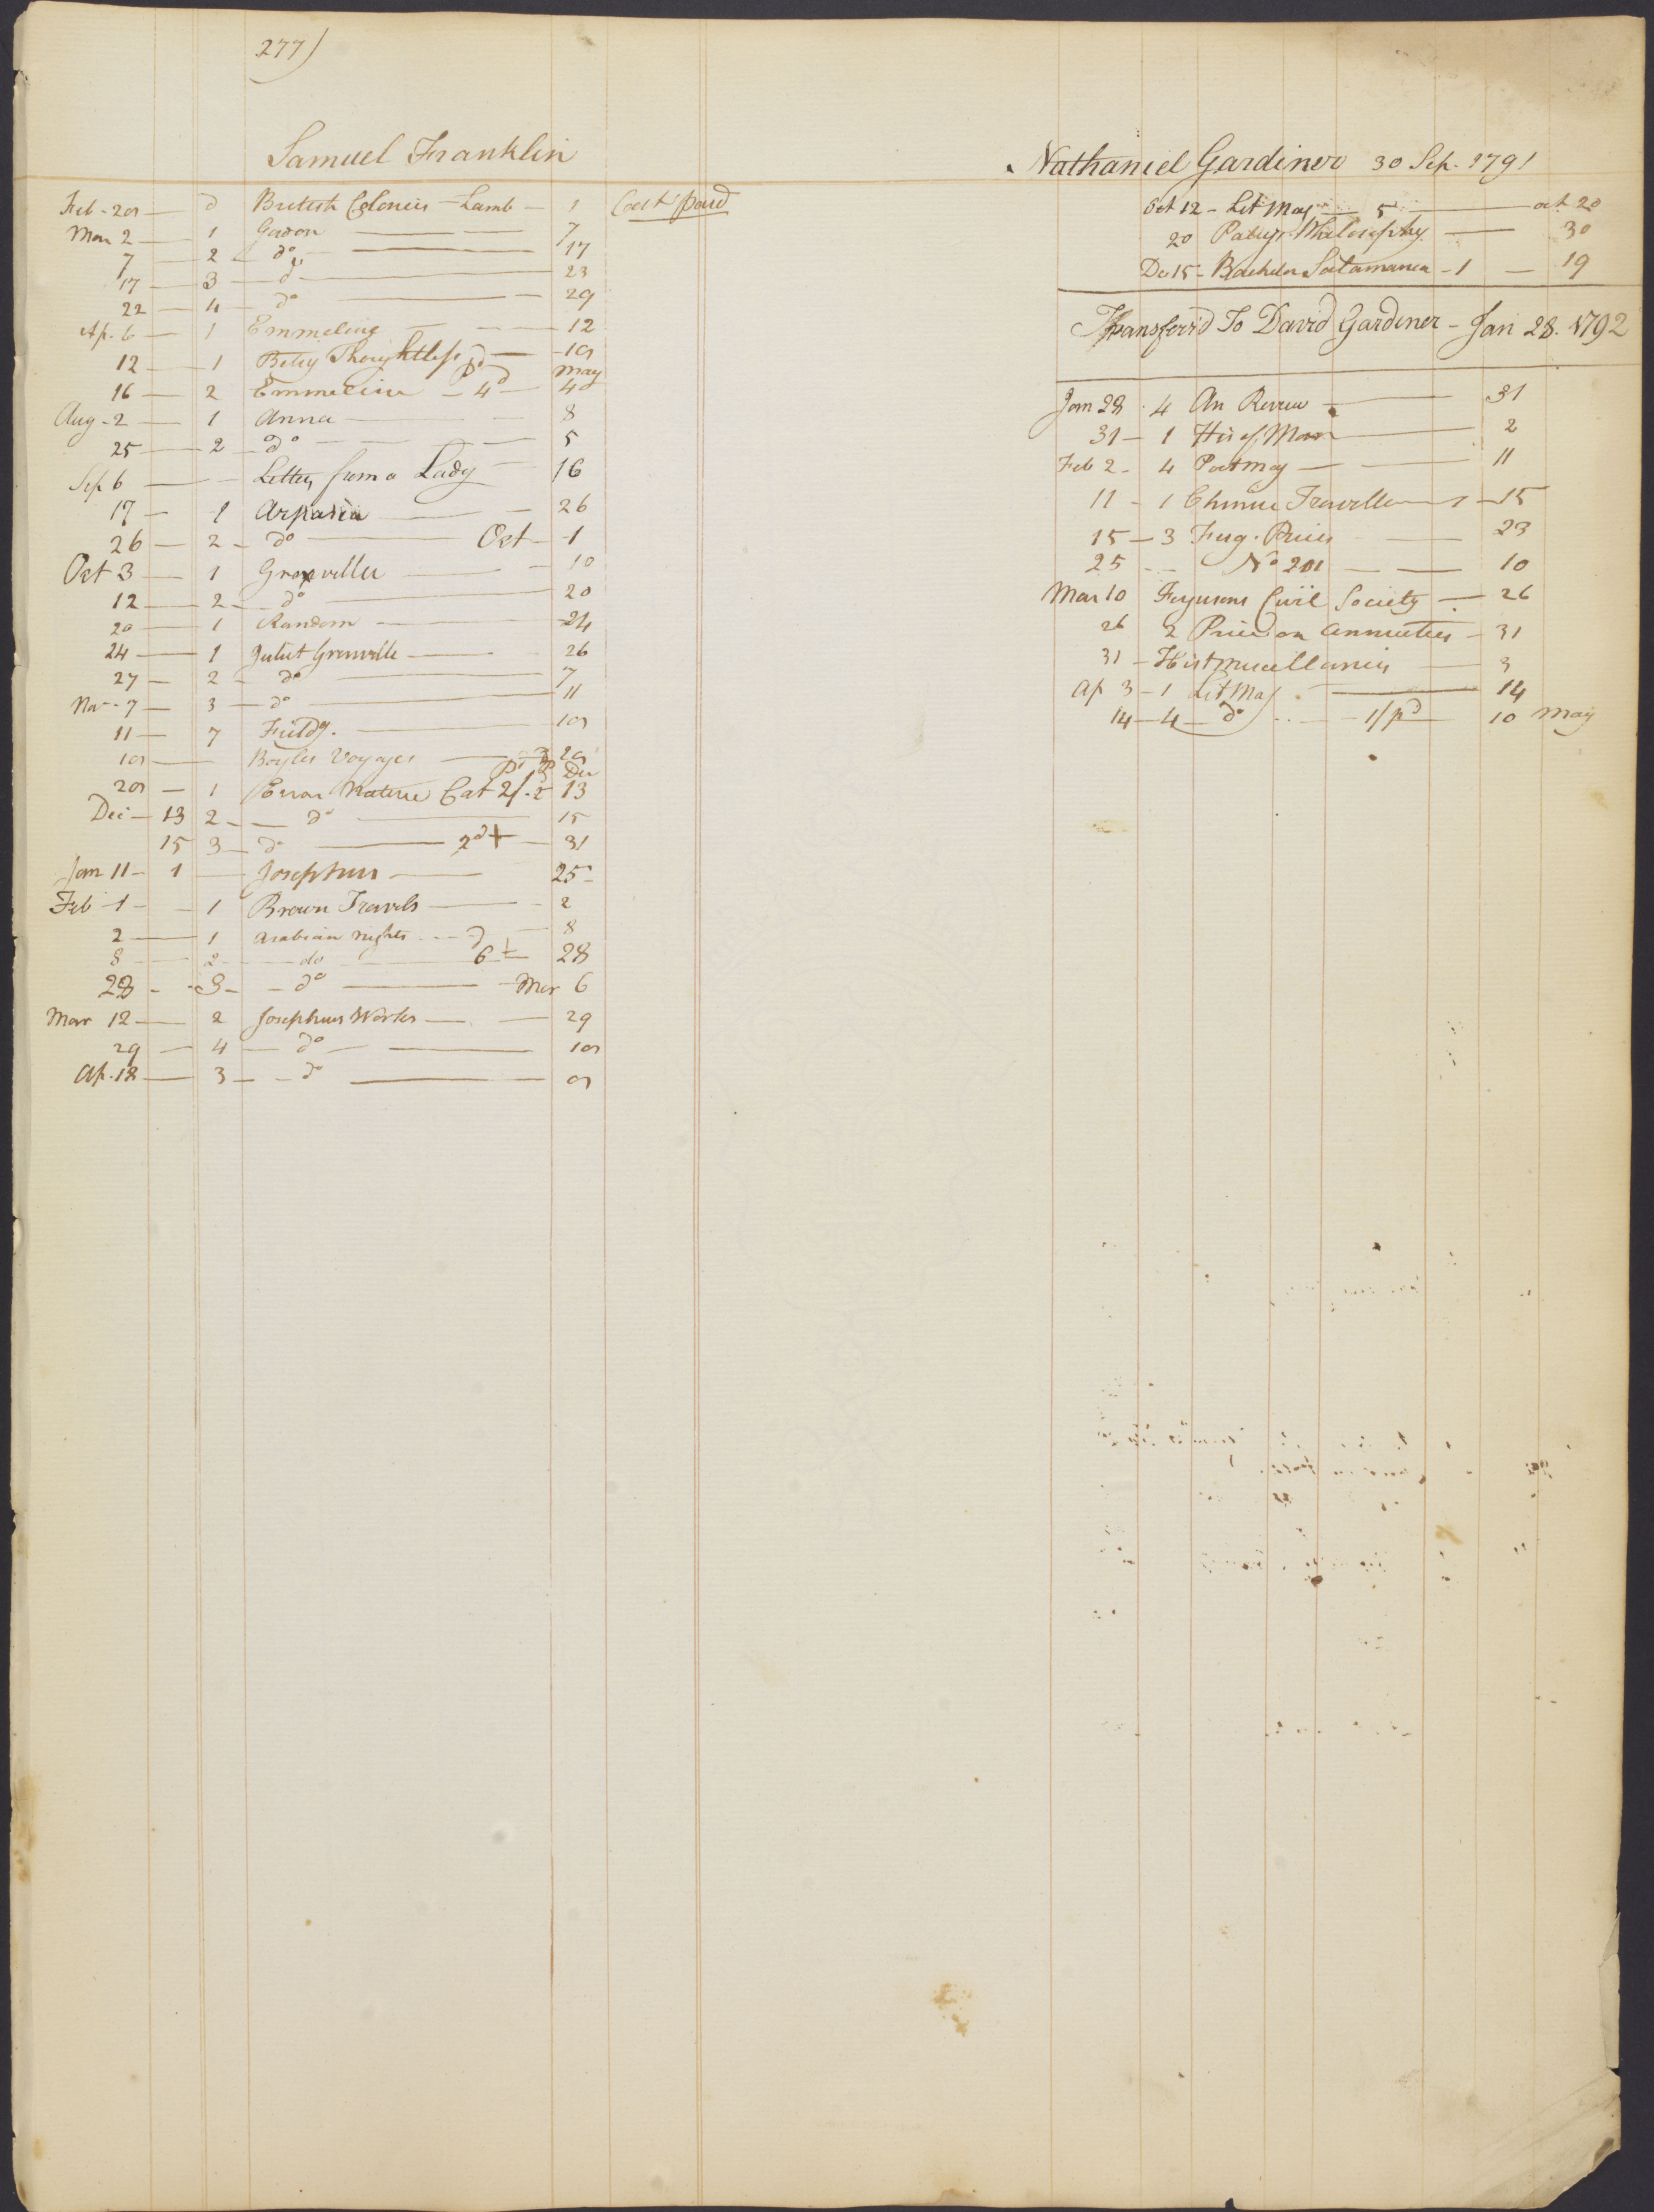 277)
Samuel Franklin
Feb - 29 — d British Colonies - Lamb — 1 Cat paid
Mar 2 — 1 — — 7
7 — 2 — do — 17
17 — 3 — do — 23
22 — 4 — do — 29
Ap. 6 — 1 Emmeline — 12
12 — 1 Betsy Thoughtless — 19
16 — 2 Emmeline — 4d pd — May 4
Aug - 2 — 1 Anna — 8
25 — 2 — do — 5
Sep 6 — Letters from a Lady — 16
17 — 1 Arpasia — 26
26 — 2 — do — Oct — 1
Oct 3 — 1 Granville — 10
12 — 2 — do — 20
20 — 1 Random — 24
24 — 1 Juliet Grenville — 26
27 — 2 — do — 7
Nov - 7 — 3 — do — 11
11 — 7 Fieldg. — 19
19 — Boyles Voyages — 29
29 — 1 Error Nature Cat 2/. Dec 13
Dec — 13 2 — do — 15
15 3 — do — 2d + — 31
Jan 11 — 1 — Josephus — 25
Feb - 1 — 1 Brown Travels — 2
2 — 1 Arabian nights — 8
8 — 2 — do — 6 + — 28
28 — 3 — do — Mar 6
Mar 12 — 2 Josephus Works — 29
29 — 4 — do — 19
Ap. 18 — 3 — do — 9
Nathaniel Gardiner 30 Sep. 1791
Oct 12 - Lit Mag — 5 — oct 20
20 Philosophy — 30
De 15 - Bachelor Salamanca - 1 — 19
Transferr'd To David Gardiner - Jan 28. 1792
Jan 28 . 4 An Review — 31
31 — 1 His of Man — 2
Feb 2 - 4 Poet mag — 11
11 - 1 Chinese Traveller — 15
15 — 3 Ferg. — 23
25 — No 201 — 10
Mar 10 Fergusons Civil Society — 26
26 2 Price on Annuities - 31
31 - Hist miscellanies — 3
Ap 3 - 1 Lit Mag — 14
14 — 4 — do — 1/pd — 10 May